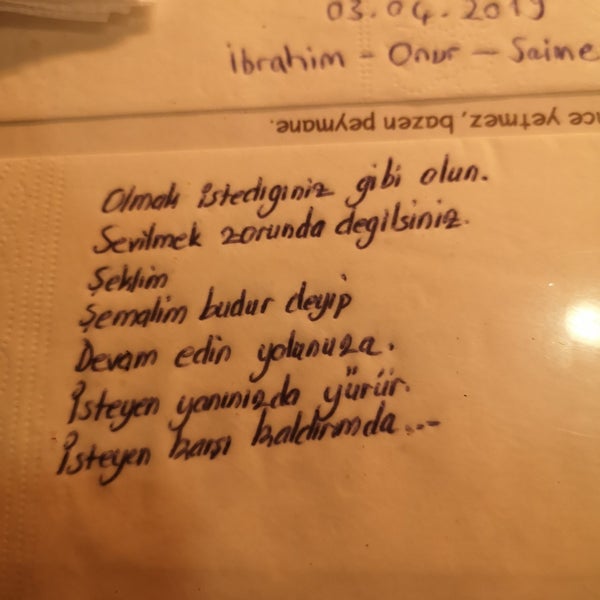 03.04.2019
İbrahim - Onur - Saime
ce yetmez, bazen peymane.
Olmak istediginiz gibi olun.
Sevilmek zorunda degilsiniz.
Şeklim
Şemalim budur deyip
Devam edin yolunuza.
İsteyen yanınızda yürür.
İsteyen karşı kaldırımda...